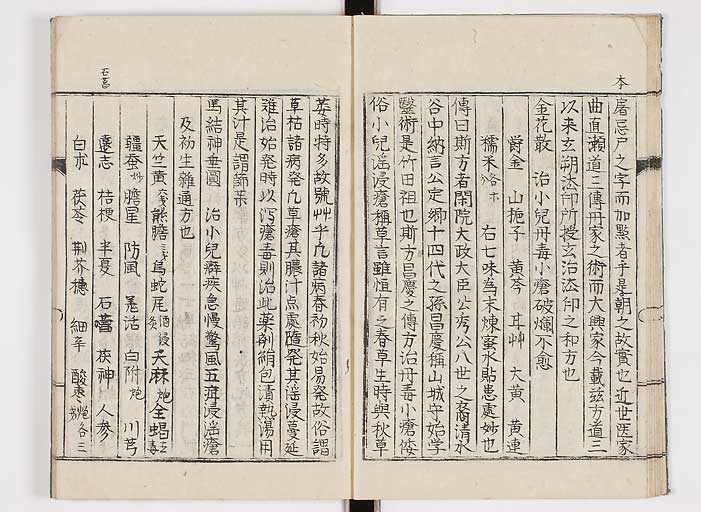 本
屠忌尸之字而加點者乎是朝之故實也近世医家
曲直瀬道三傳丹家之術而大興家今載茲方道三
以来玄朔法印所授玄治法印之和方也
金花散　治小兒丹毒小瘡破爛不愈
欝金　山梔子　黄芩　甘艸　大黄　黄連
糯米　右七味為末煉蜜水貼患處妙也
傳曰斯方者閑院太政大臣公季公八世之裔清水
谷中納言公定卿十四代之孫昌慶稱山城守始学
醫術是竹田祖也斯方昌慶之傳方治丹毒小瘡倭
俗小兒浸瘡稱草言雖恒有之春草生時與秋草
萎時特多故號艸乎凡諸病春初秋始易発故俗謂
草枯諸病発凢草瘡其膿汁点處随発其浸蔓延
難治始発時以瀉瘡毒則治此薬剤絹包漬熱湯用
其汁是謂
馬結神垂圓　治小兒癖疾急慢驚風五疳浸瘡
及初生雜通方也
天竺黄　熊膽　烏蛇尾　天麻炮　全蝎
彊蚕炒　膽星　防風　羌活　白附炮　川芎
遠志　桔梗　半夏　石菖　茯神　人参
白朮　茯苓　荆芥穗　細辛　酸棗炮各三
石菖